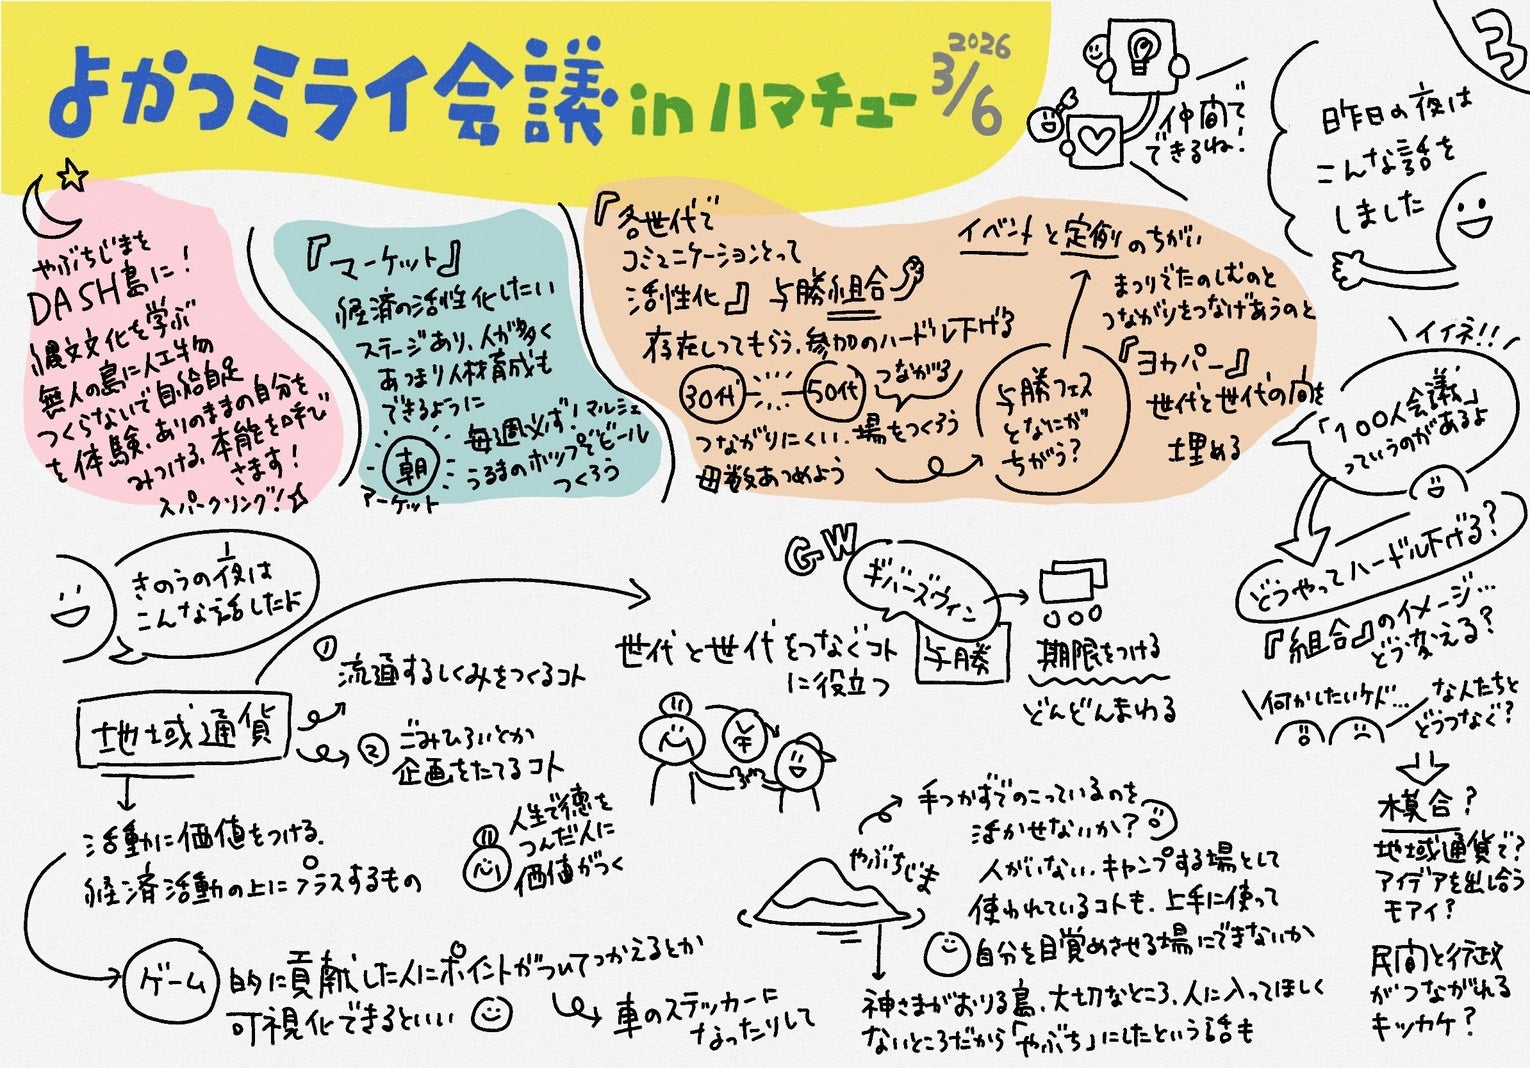 よかつミライ会議 in ハマチュー
2026
3/6
3
仲間で
できるね!
昨日の夜は
こんな話を
しました
やぶちじまを
DASH島に!
縄文文化を学ぶ
無人の島に人工物
つくらないで自給自足
を体験、ありのままの自分を
みつける、本能を呼び
さます!
スパークリング!
『マーケット』
経済の活性化したい
ステージあり、人が多く
あつまり人材育成も
できるように
毎週必ず!マルシェ
朝
アーケット
うるまのホップでビール
つくろう
『各世代で
コミュニケーションとって
活性化』与勝組合
存在しってもらう、参加のハードル下げる
30代
50代
つながる
つながりにくい、場をつくろう
母数あつめよう
与勝フェス
となにが
ちがう?
イベントと定例のちがい
まつりでたのしむのと
つながりをつなげあうのと
『ヨカパー』
世代と世代の間を
埋める
イイネ!!
「100人会議」
っていうのがあるよ
どうやってハードル下げる?
『組合』のイメージ…
どう変える?
何かしたいケド…
な人たちと
どうつなぐ?
模合?
地域通貨で?
アイデアを出し合う
モアイ?
民間と行政
がつながれる
キッカケ?
きのうの夜は
こんな話したよ
地域通貨
① 流通するしくみをつくるコト
② ごみひろいとか
企画をたてるコト
世代と世代をつなぐコト
に役立つ
GW
ギバーズウィン
与勝
期限をつける
どんどんまわる
活動に価値をつける、
経済活動の上にプラスするもの
人生で徳を
つんだ人に
価値がつく
ゲーム
的に貢献した人にポイントがついてつかえるとか
可視化できるといい
車のステッカーに
なったりして
やぶちじま
手つかずでのこっているのを
活かせないか?
人がいない、キャンプする場として
使われているコトも、上手に使って
自分を目覚めさせる場にできないか
神さまがおりる島、大切なところ、人に入ってほしく
ないところだから「やぶち」にしたという話も